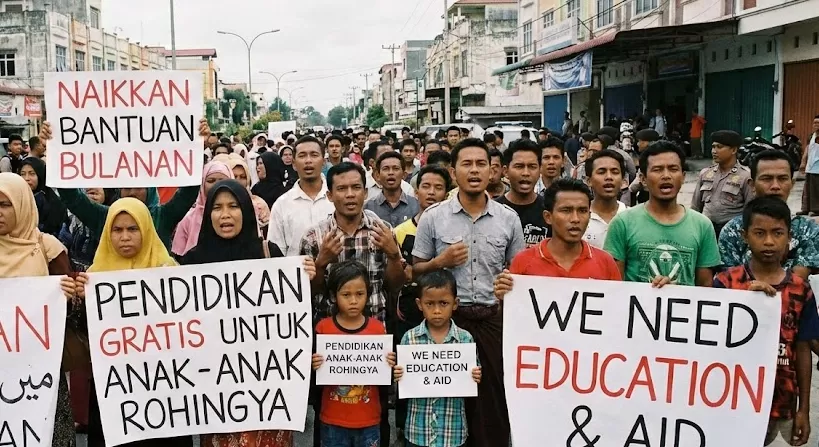 NAIKKAN
BANTUAN
BULANAN
AN
میں
AN
PENDIDIKAN
GRATIS UNTUK
ANAK-ANAK
ROHINGYA
PENDIDIKAN
ANAK-ANAK
ROHINGYA
WE NEED
EDUCATION
& AID
WE NEED
EDUCATION
& AID